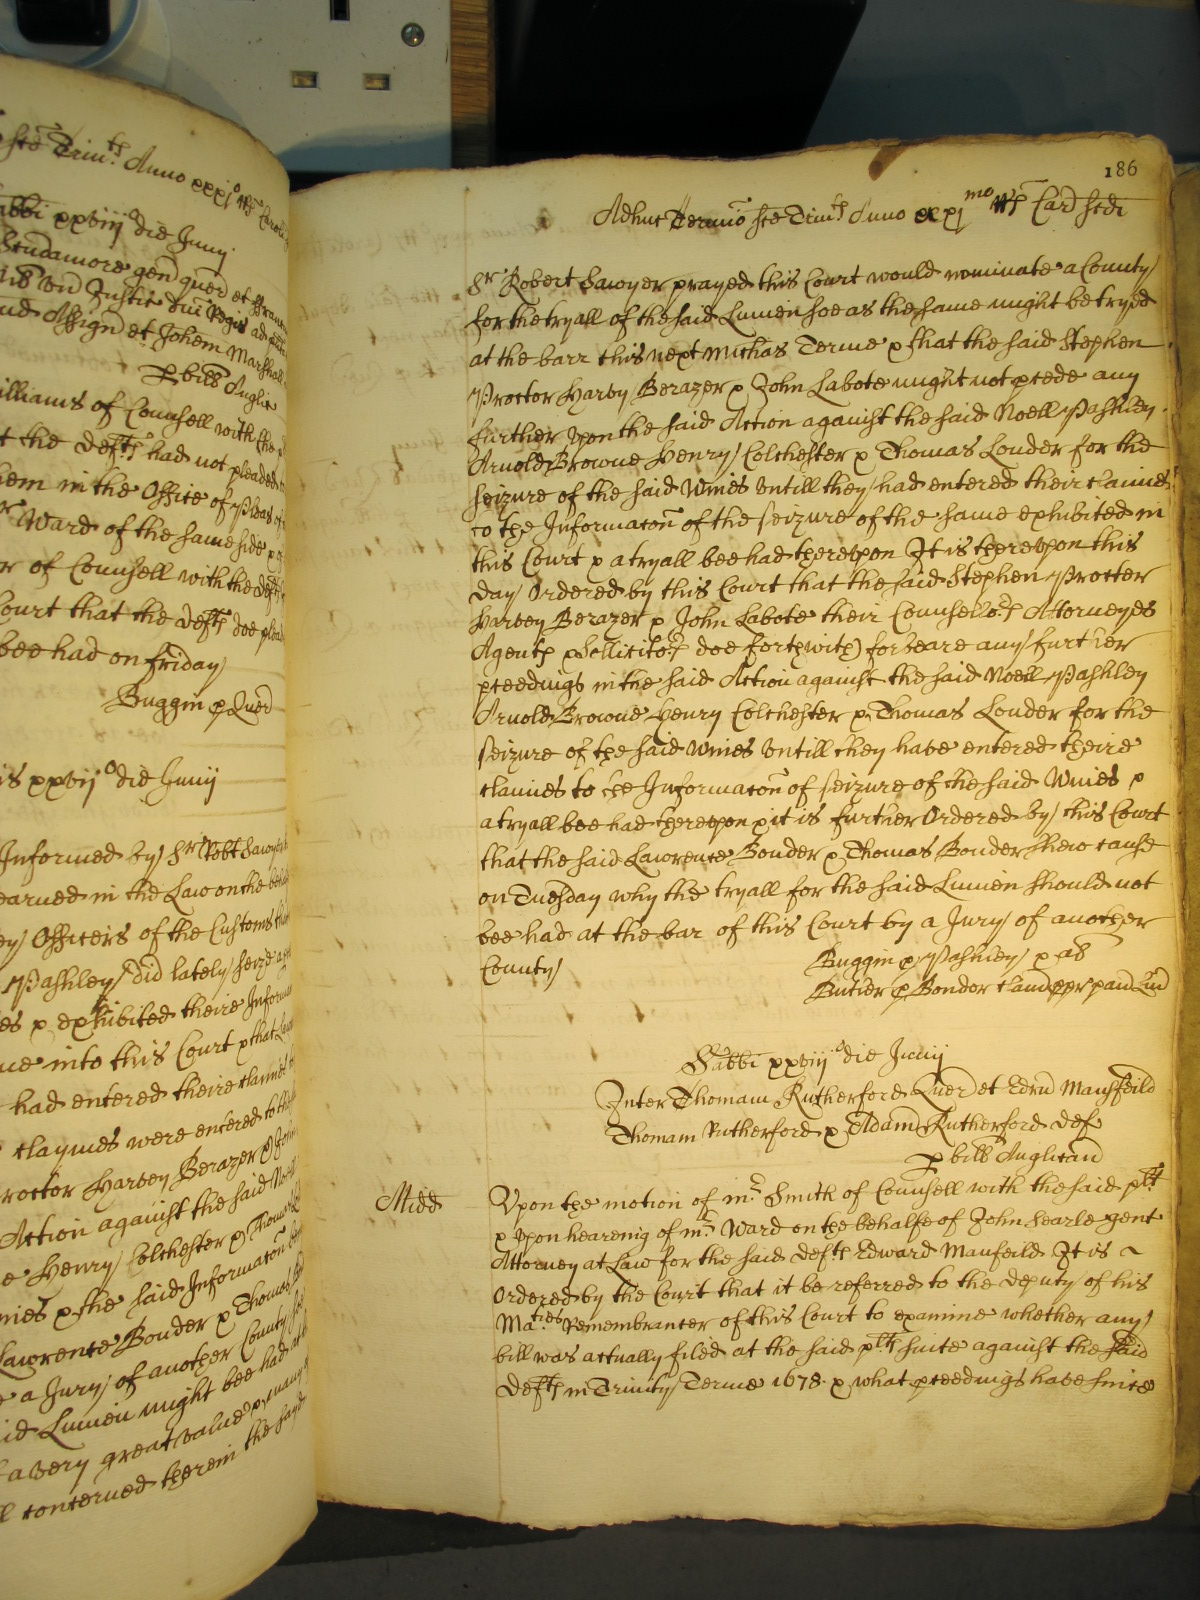 ste Trin:th Anno xxxj° Rs Caroli
Sabbi xxviij° die Junij
Scudamore gen quer et Fran
Justic dni Regis ad
Assign et Johem Marshall
p bill Anglic
illiams of Counsell with the
t the Defts had not pleaded
hem in the Office of Pleas
r Ward of the same side
r of Counsell with the Deft
Court that the Defts doe plead
bee had on friday
Buggin p Quer
is xxvij° die Junij
Informed by Sr Robt Sawyer
earned in the Law on the behalf
ey Officers of the Customs
Pashley did lately seize
es & exhibited theire Informa
ue into this Court & that
had entered theire claimes
claymes were entered to
Proctor Harvey Berazer & John
Action against the said Noell
e Henry Colchester & Thomas
nies & the said Informacon
Lawrence Bonder & Thomas
e a Jury of another County
id Lumen might bee had at
a very great value & many
ll concerned therein the said
186
Adhuc Termio ste Trin:th Anno xxxjmo Rs Card scdi
Sr Robert Sawyer prayed this Court would nominate a County
for the tryall of the said Lumen soe as the same might be tryed
at the barr this next Michas Terme & that the said Stephen
Proctor Harvy Berazer & John Labote might not pcede any
further upon the said Action against the said Noell Pashley
Arnold Browne Henry Colchester & Thomas Louder for the
seizure of the said Wines untill they had entered their claimes
to the Informacon of the seizure of the same exhibited in
this Court & a tryall bee had thereupon It is thereupon this
day Ordered by this Court that the said Stephen Procter
Harvey Berazer & John Labote their Counsellors Attorneyes
Agents & Sollicitors doe forthwith forbeare any further
pceedings in the said Action against the said Noell Pashley
Arnold Browne Henry Colchester & Thomas Louder for the
seizure of the said Wines untill they have entered theire
claimes to the Informacon of seizure of the said Wines &
a tryall bee had thereupon & it is further Ordered by this Court
that the said Lawrence Bonder & Thomas Bonder shew cause
on Tuesday why the tryall for the said Lumen should not
bee had at the bar of this Court by a Jury of another
County
Buggin p Pashley & als
Butler p Bondor
Sabbi xxviij° die Junij
Inter Thomam Rutherford Quer et Edrd Mansfeild
Thomam Rutherford & Adam Rutherford Def
p bill Anglican
Midd
Upon the motion of mr Smith of Counsell with the said plt
& upon hearing of mr Ward on the behalfe of John Searle gent
Attorney at Law for the said Deft Edward Manfeild It is ~
Ordered by the Court that it be referred to the deputy of his
Maties Remembrancer of this Court to examine whether any
bill was actually filed at the said plts suite against the said
Defts in Trinity Terme 1678 & what pceedings have since